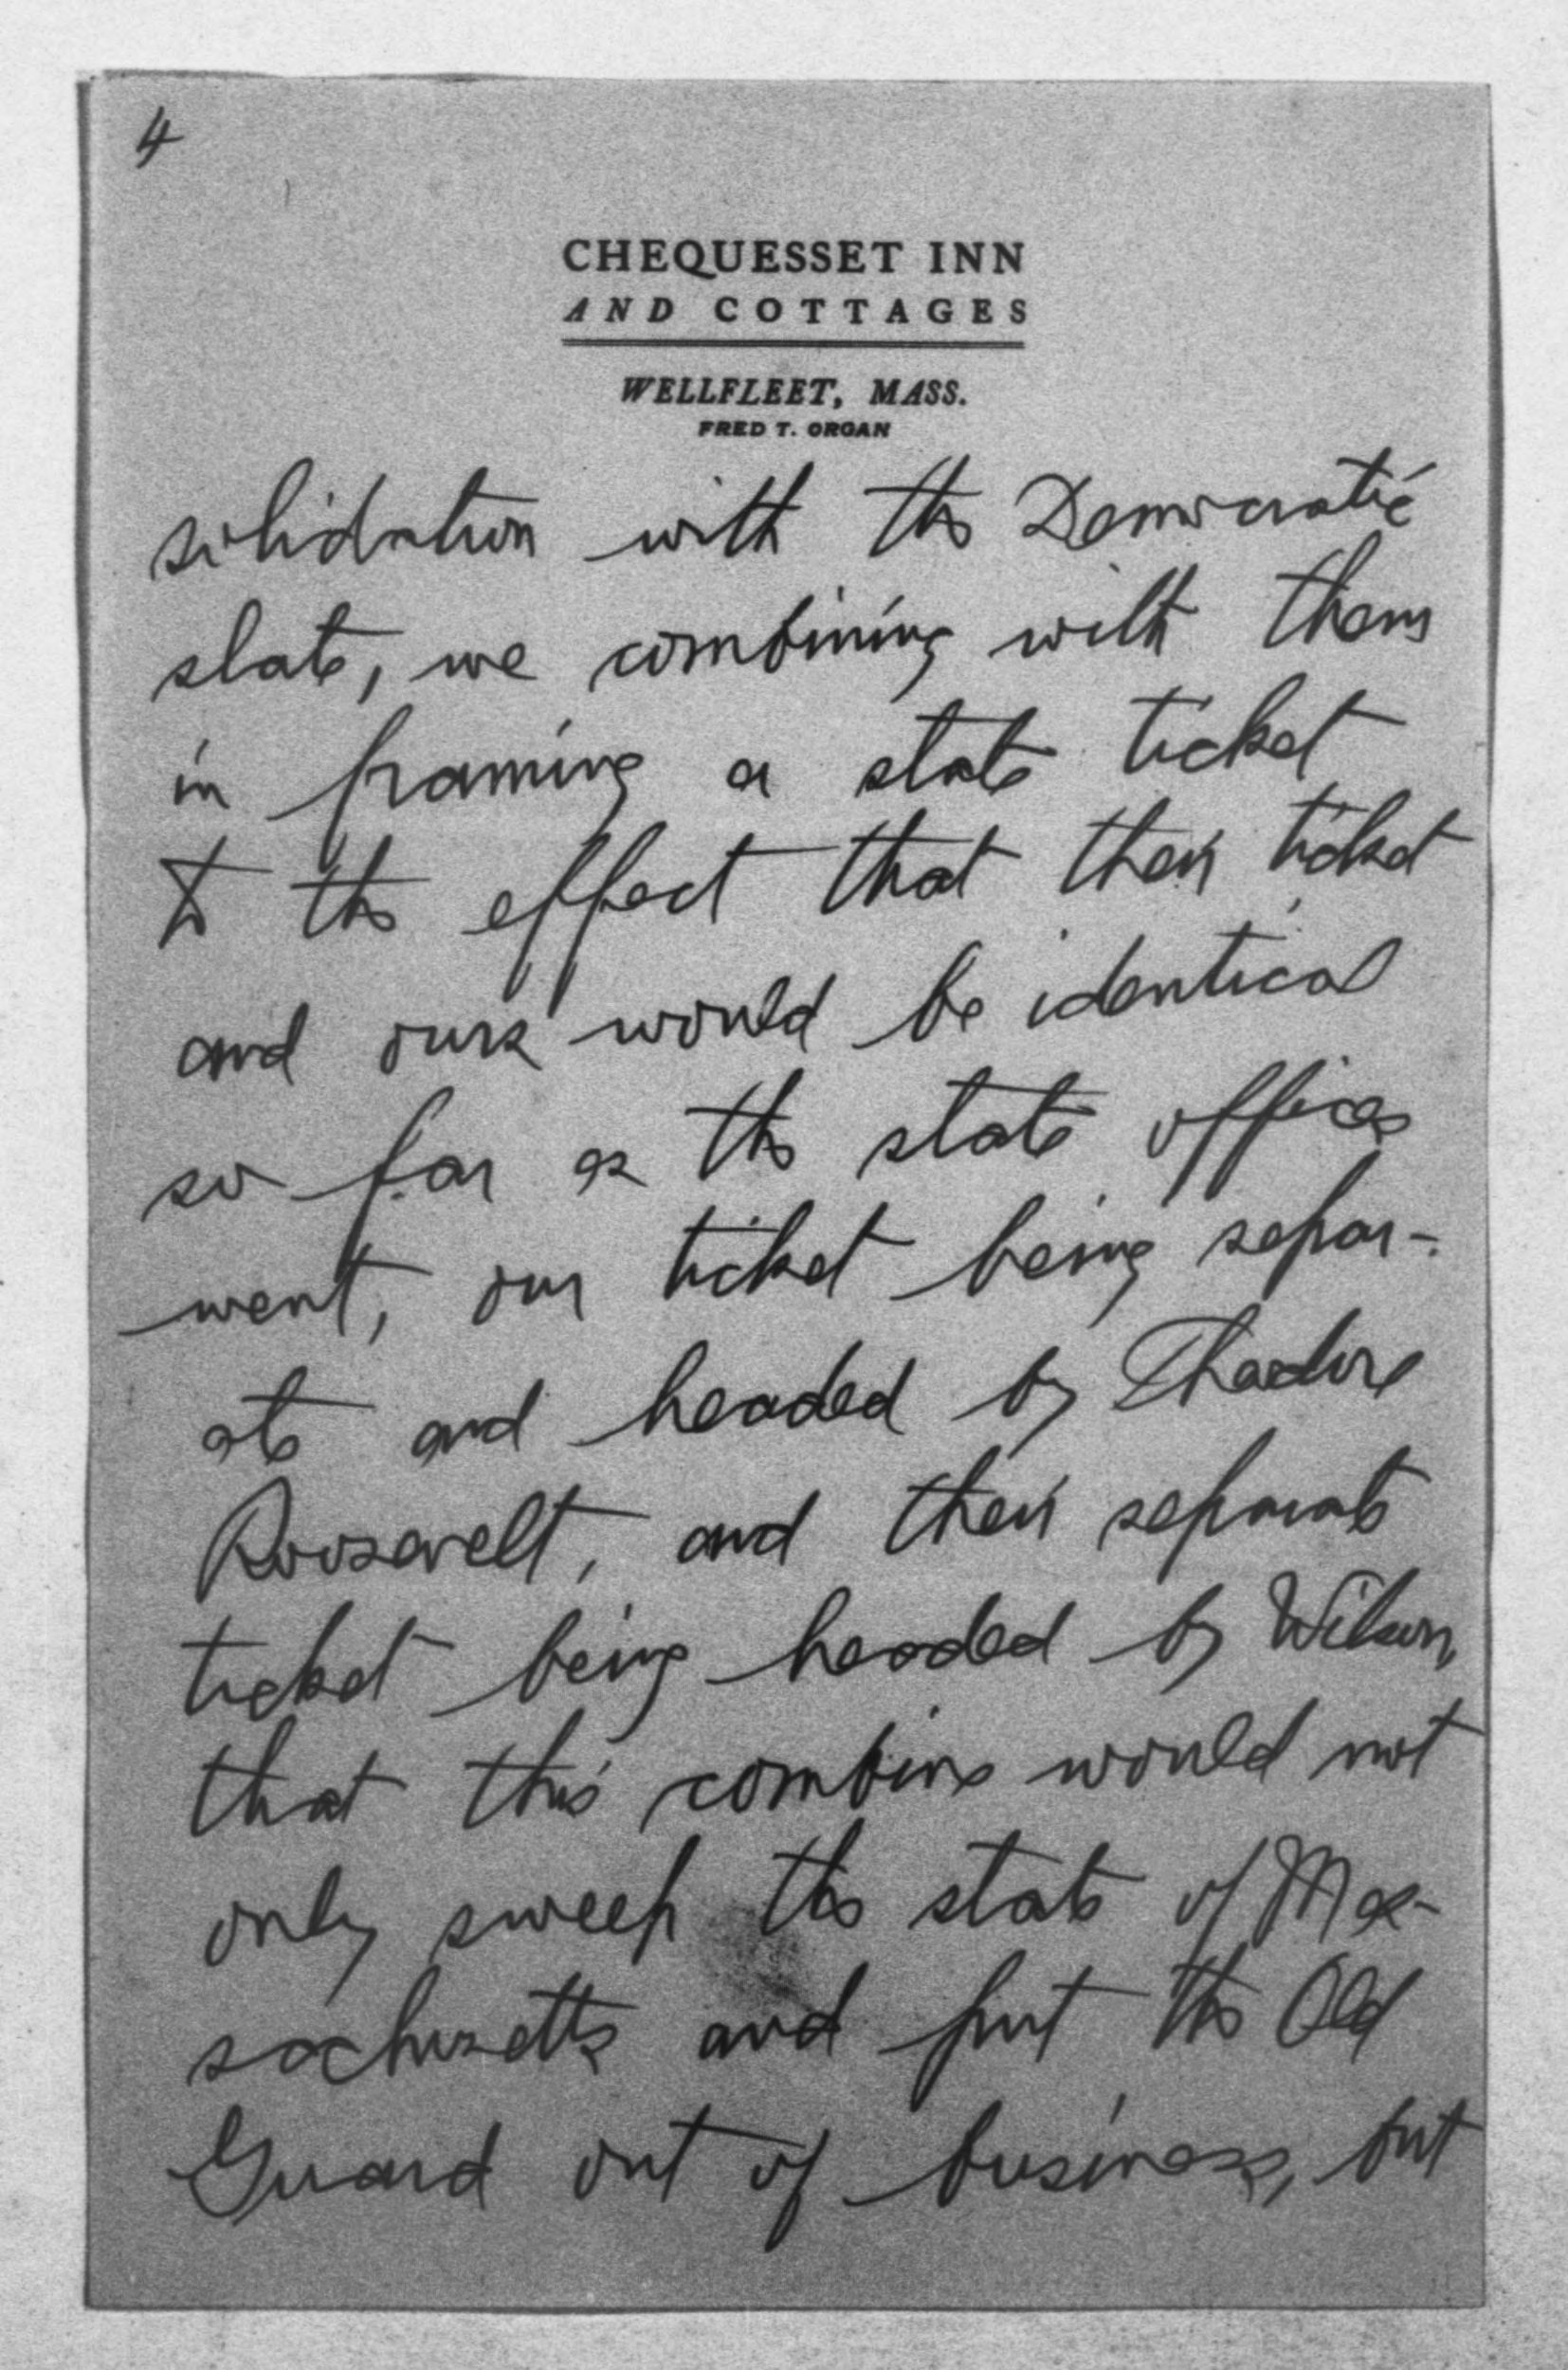 4
CHEQUESSET INN
AND COTTAGES
WELLFLEET, MASS.
FRED T. ORGAN
solidation with the Democratic
slate, we combining with them
in framing a state ticket
to the effect that their ticket
and ours would be identical
so far as the state offices
went, our ticket being separ-
ate and headed by Theodore
Roosevelt, and their separate
ticket being headed by Wilson,
that this combine would not
only sweep the state of Mas-
sachusetts and put the Old
Guard out of business, but